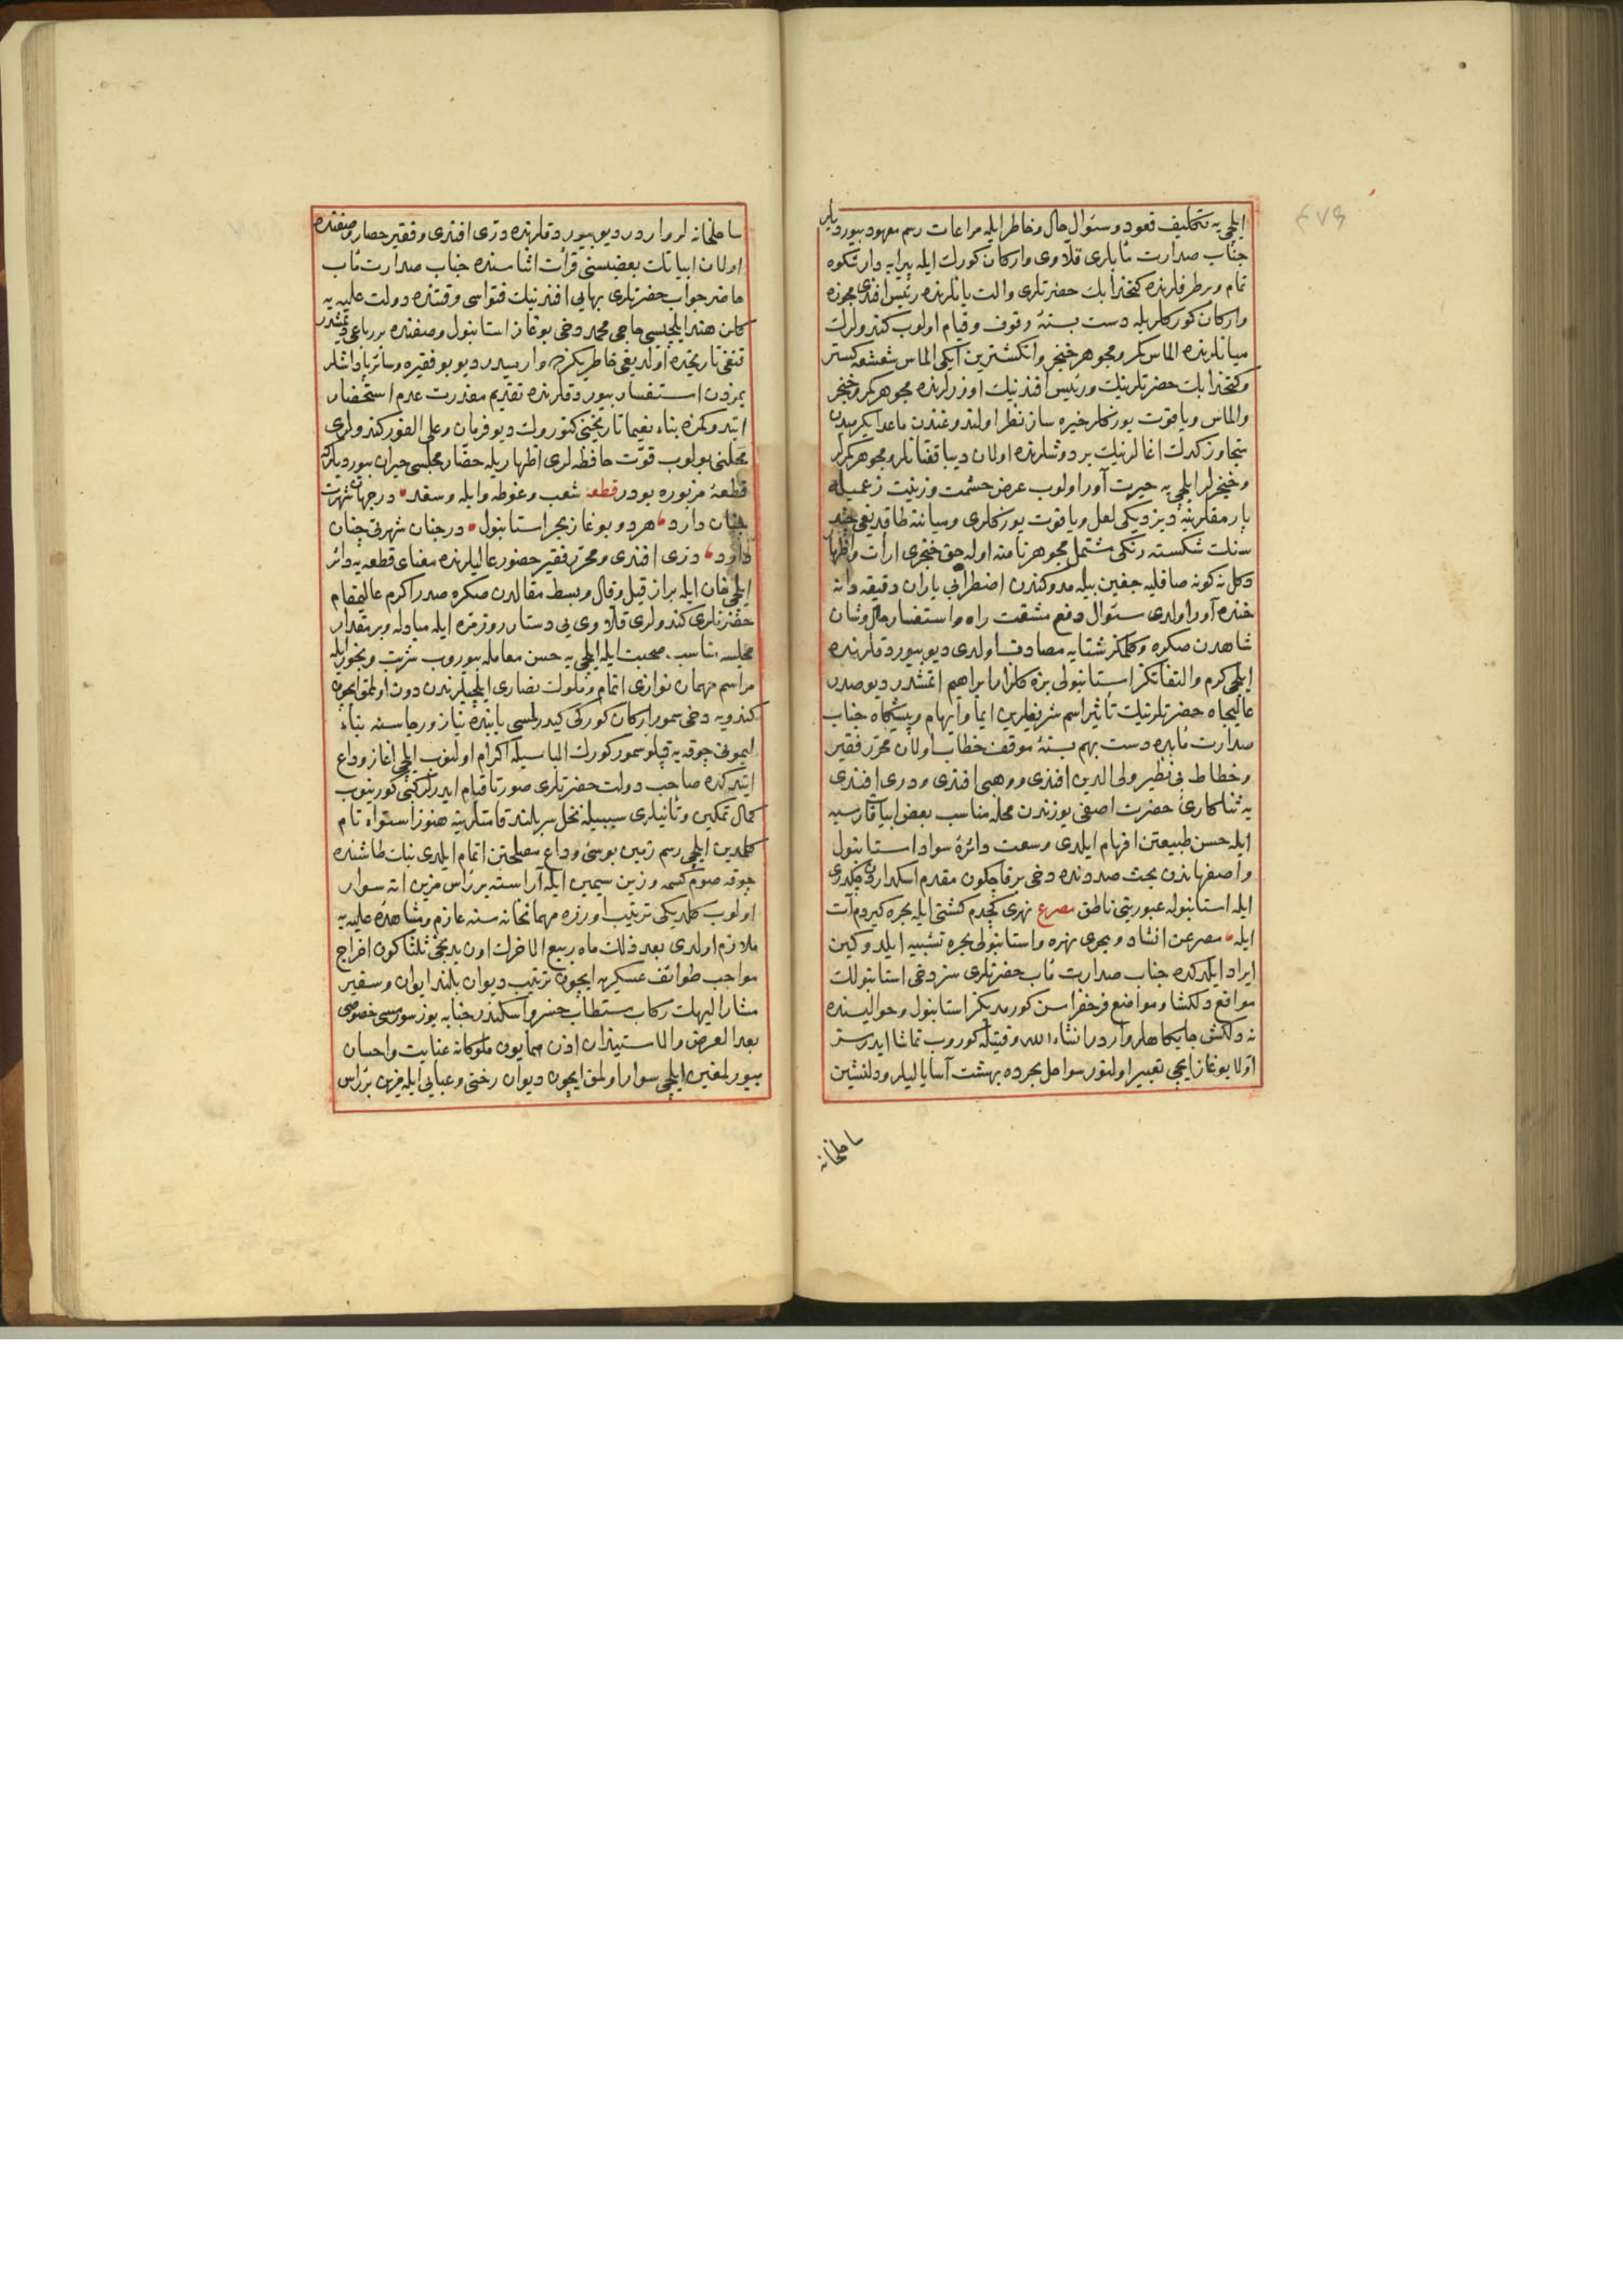 ایلچی یه تکلیف قعود و سئوال حال و خاطر ایله مراعات رسم معهود بیوردیلر
جناب صدارت مآبلری قلاوی وارکان کورک ایله پیرایه دار شکوه
تمام و برطرفلرنده کتخدا بك حضرتلری والت یانلرنده رئیس افندی مجوزه
وارکان کورکلریله دست بستهٔ وقوف و قیام اولوب کندولرك
میانلرنده الماس کمر و مجوهر خنجر وانکشترین ایکی الماس شعشعه کستر
وکتخدا بك حضرتلرینك ورئیس افندینك اوزرلرنده مجوهر کمر و خنجر
والماس ویاقوت یوزکلر خیره ساز نظر اولندوغندن ماعدا یکرمیدن
متجاوز کدك اغالرینك بر دوشلرنده اولان دیبا قفتانلر و مجوهر کمرلر
وخنجرلر ایلچی یه حیرت آور اولوب عرض حشمت وزینت زعمیله
پارمقلرینه دیزدیکی لعل ویاقوت یوزکلری ومیاننه طاقدیغی چند
سنك شکسته رنکی مشتمل مجوهر نامنه اوله جق خنجری ارأت واظهار
دکل نه کونه صاقلیه جغین بیله مدوکندن اضطرابی یاران دقیقه دانه
خنده آور اولدی سئوال دفع مشقت راه واستفسار حال وشان
شاهدن صکره وکلمکز شتایه مصادف اولدی دیو بیوردقلرنده
ایلچی کرم والتفاتکز استانبولی بزه کلزار ابراهیم اتمشدر دیو صدر
عالیجاه حضرتلرینك تأثیر اسم شریفلرین ایما وایهام و پیشکاه جناب
صدارت مآبده دست بهم بستهٔ موقف خطاب اولان محرر فقیر
وخطاط بی نظیر ولی الدین افندی و وهبی افندی و دری افندی
یه ثناکاری حضرت اصفی یوزندن محله مناسب بعض ابیات فارسیه
ایله حسن طبیعتن افهام ایلدی وسعت دائرهٔ سواد استانبول
واصفهاندن بحث صددنده دخی برقاچکون مقدم اسکداردن چکدری
ایله استانبوله عبورینی ناطق مصرع نهری کچدم کشتی ایله بحره کیردم آت
ایله مصرعن انشاد و بحری نهره واستانبولی بحره تشبیه ایلدوکین
ایراد ایلدکده جناب صدارت مآب حضرتلری سز دخی استانبولك
مواقع دلکشا و مواضع فرحفزاسن کورمدیکز استانبول و حوالیسنده
نه دلکش جایکاهلر واردر انشاءالله وقتیله کوروب تماشا ایدرسز
اولا بوغاز ایچی تعبیر اولنور سواحل بحرده بهشت آسا یالیلر ودلنشین
ساحلخانه
ساحلخانه لر واردر دیو بیوردقلرنده دری افندی و فقیر حصار وصفنده
اولان ابیاتك بعضیسنی قرأت اثناسنده جناب صدارت مآب
حاضر جواب حضرتلری بهایی افندینك فتواسی وقتنده دولت علیه یه
کلن هند ایلچیسی حاجی محمد دخی بوغاز استانبول وصفنده بر رباعی دیمشدر
قنغی تاریخده اولدیغی خاطریکزده وارمیدر دیو بو فقیره وسائر پاداشلر
یمزدن استفسار بیوردقلرنده تقدیم معذرت عدم استحضار
اتدوکمزه بناء نعیما تاریخنی کتورك دیو فرمان وعلی الفور کندولری
محلنی بولوب قوت حافظه لری اظهاریله حضار مجلسی حیران بیوردیلر
قطعهٔ مزبوره بودر قطعه شعب و غوطه وابله وسغد در جهان شهرت
چنان دارد هر دو بوغاز بحر استانبول در جنان شهرتی چنان
دارد دری افندی و محرر فقیر حضور عالیلرنده معنای قطعه یه دائر
ایلچی خان ایله براز قیل وقال و بسط مقالدن صکره صدر اکرم عالیمقام
حضرتلری کندولری قلاوی یی دستار روزمره ایله مبادله و بر مقدار
مجلسه مناسب صحبت ایله ایلچی یه حسن معامله بیوروب شربت وبخور ایله
مراسم مهمان نوازی اتمام و ملوك نصاری ایلچیلرندن دون اولمق ایچون
کندویه دخی سمور ارکان کورکی کیدرلمسی بابنده نیاز و رجاسنه بناء
لیمونی چوقه یه قپلو سمور کورك الباسیله اکرام اولنوب ایلچی اغاز وداع
ایتدکده صاحب دولت حضرتلری صورتا قیام ایدر کبی کورینوب
کمال تمکین و تأنیلری سببیله نخل سربلند قامتلرینه هنوز استواء تام
کلمدین ایلچی رسم زمین بوسی وداع مصلحتن اتمام ایلدی بنك طاشنده
چوقه صوم کسمه و زین سیمین ایله آراسته بر رأس مزین اته سوار
اولوب کلدیکی ترتیب اوزره مهمانخانه سنه عازم و مشاهدهٔ علیه یه
ملازم اولدی بعد ذلك ماه ربیع الاخرك اون یدنجی ثلثا کون اخراج
مواجب طوائف عسکریه ایچون ترتیب دیوان بلند ایوان و سفیر
مشار الیهك رکاب مستطاب خسرو اسکندر جنابه یوز سورمسی خصوصی
بعد العرض والاستیذان اذن همایون ملوکانه عنایت واحسان
بیورلمغین ایلچی سوار اولمق ایچون دیوان رختی وعبایی ایله مزین بر رأس